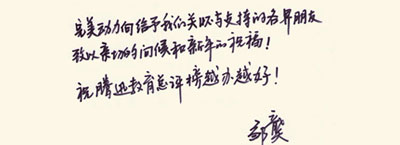 完美动力向给予我们关怀与支持的各界朋友
致以亲切的问候和新年的祝福！
祝腾迅教育总评榜越办越好！